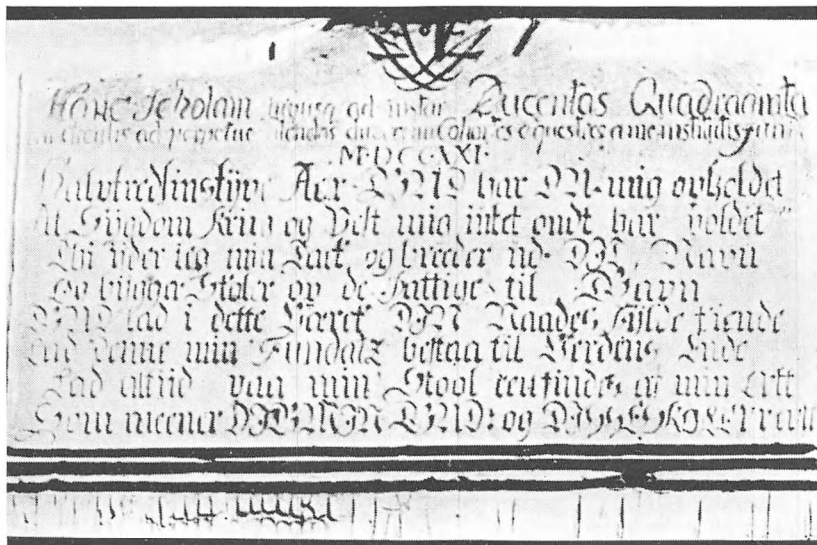 Hanc Scholam ad instar Ducentas Quadraginta
MDCCXXI
Halvtredsinstyve Aar GUD har DU mig opholdet
At Sygdom Krig og Pest mig intet ondt har voldet
Thi yder ieg min Tack og breeder ud DIT Navn
Og bÿgger Skoler op de Fattige til Gavn
GUD lad i dette Verck DIN Naades Fylde kiende
Lad denne min Fundatz bestaa til Verdens Ende
Lad altiid paa min Stool een findes af min Ætt
Som meener DIG MIN GUD og DISSE SKOLER